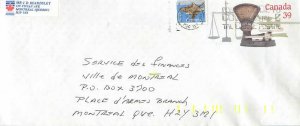 MONTREAL QUEBEC
Canada
39
SERVICE DES FINANCES
VILLE DE MONTREAL
P.O. BOX 3700
PLACE D'ARMES BRANCH,
MONTREAL QUE. H2Y 3M1